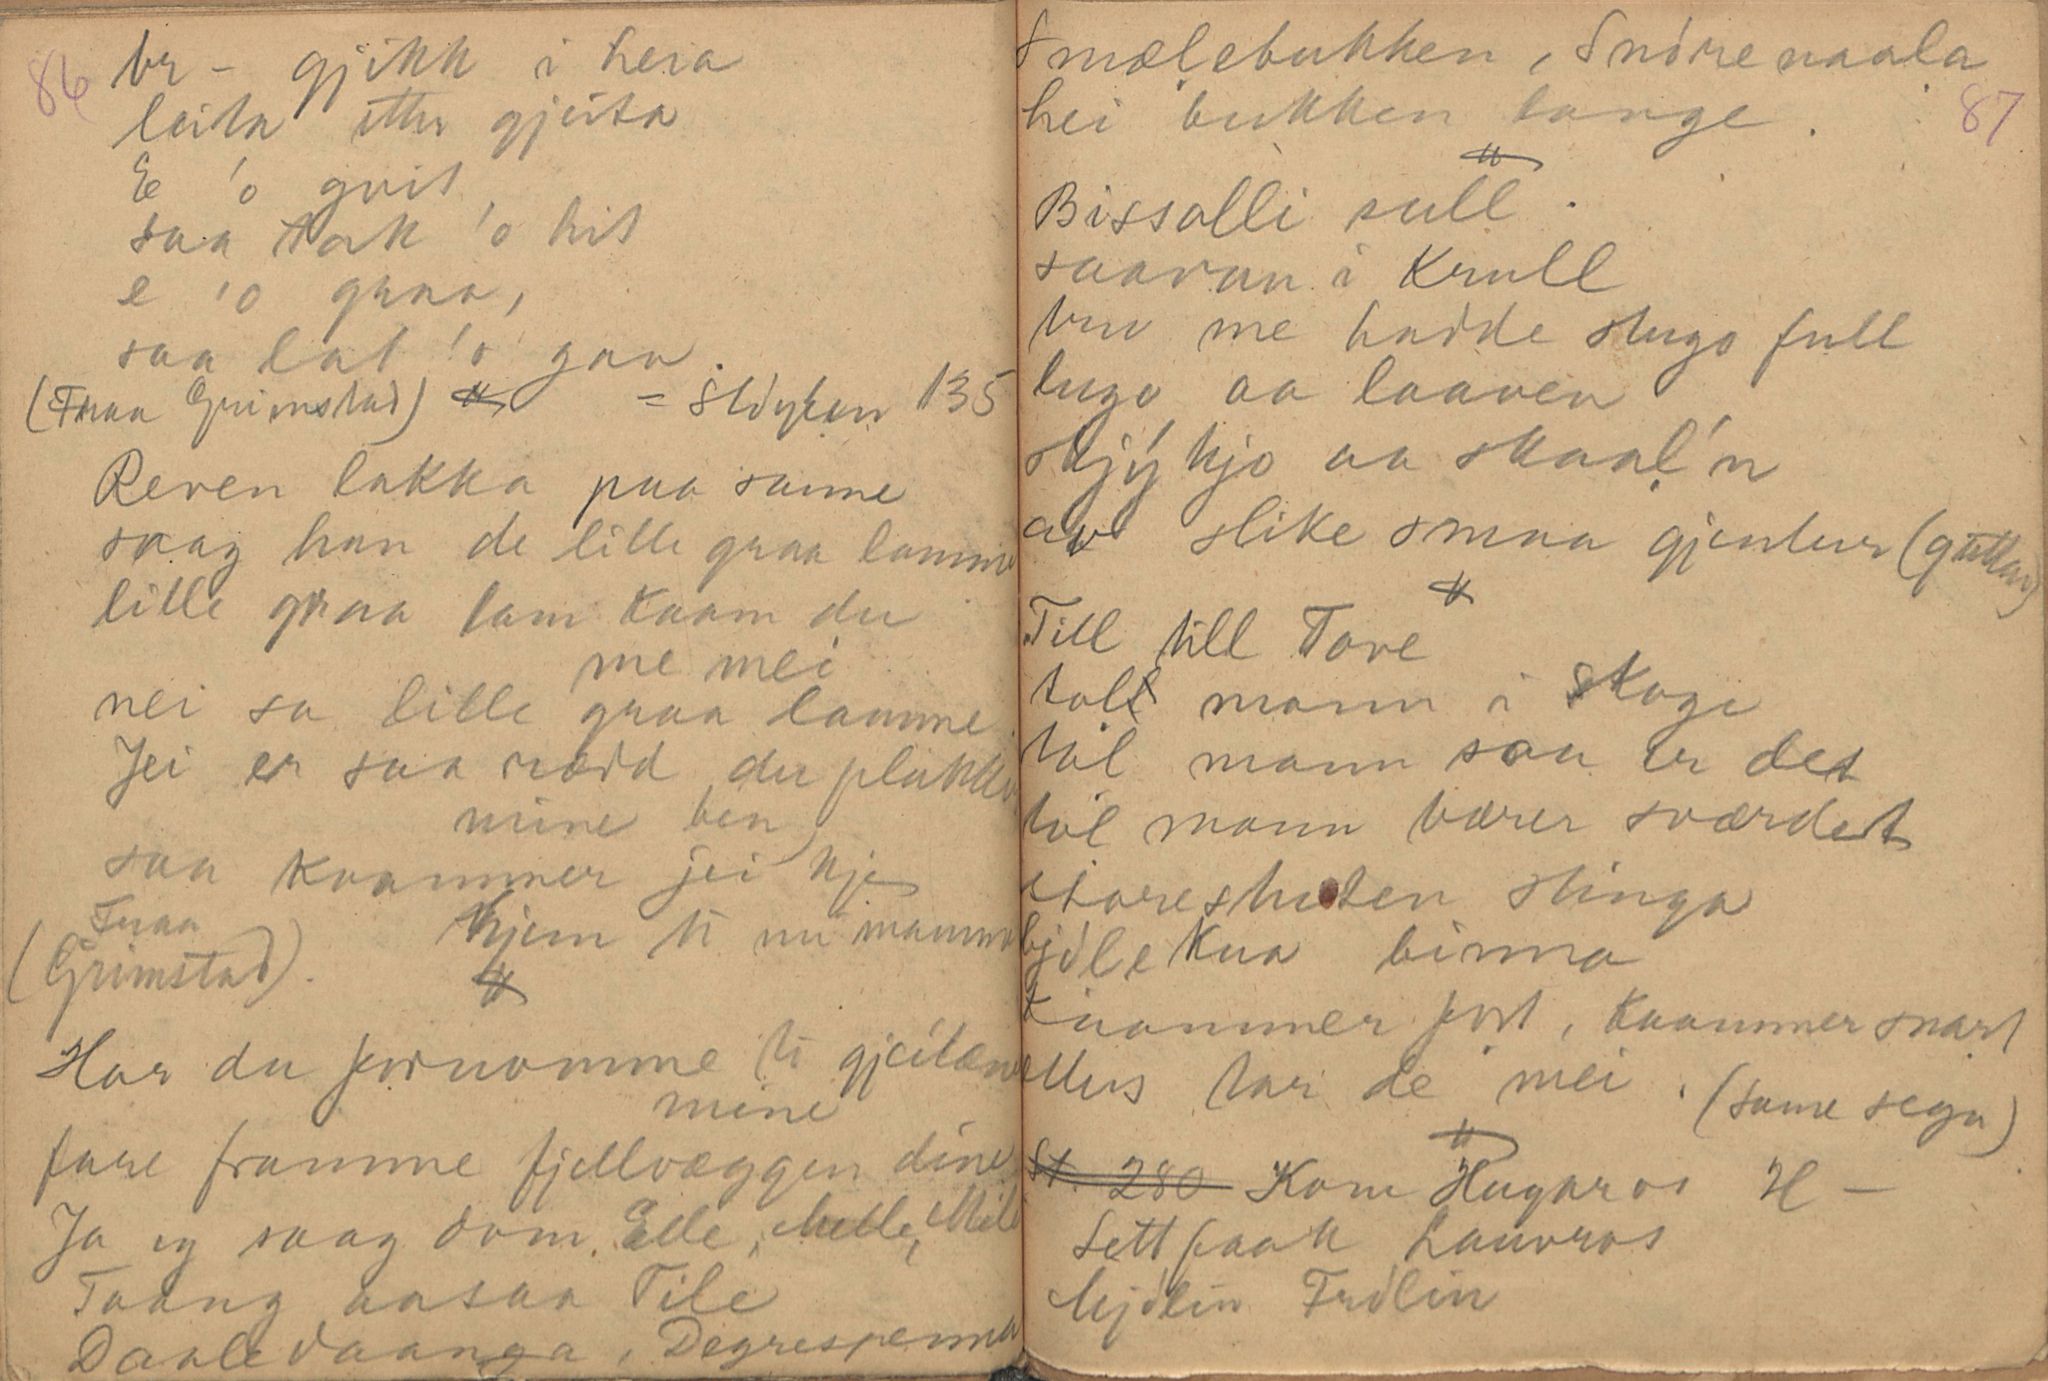 86
br – gjikk i heia
leita etter gjeita
E 'o gvit,
saa tak 'o hit
e 'o graa,
saa lat 'o gaa.
(Fraa Grimstad) = Støylen 135
Reven lakka paa sanne
saag han de lille graa lamme
lille graa lam kaam du
me mei
nei sa lille graa lamme
Jei er saa rædd du plukker
mine ben
saa kaammer jei kje
hjem ti nu mamma
(Fraa
Grimstad).
Har du fornomme ti gjeitæne
mine
fare framme fjellvæggen dine
Ja eg saag dom Elle, Melle,
Taang aasaa Tile
Daaledaanga, Degrespenna
Smælebukken, Snórenaala
hei bukken lange.
87
Bissolli sull.
saavan i Krull
bru me hadde stugo full
bugo aa laaven
skjýkjo aa skaal'n
av slike smaa gjentur (guttar)
Till till Tove
tolf mann i Skoge
tol mann saa er det
tol mann bærer sværdet
storeshuten stinga
bjóllekua binna
Kaammer fort, kaammer snart
ellers tar de mei. (same sega)
St. 280 Kom Hugaros H –
Lettfaak Lauvros
Mjólin Frólin